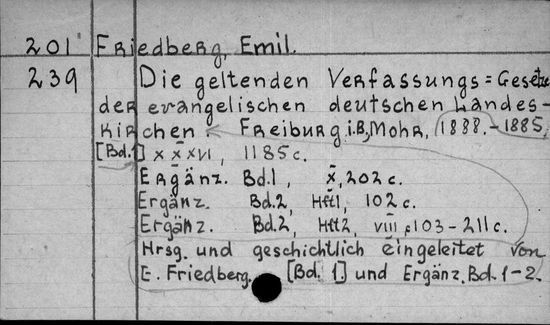 201 Friedberg, Emil.
239 Die geltenden Verfassungs=Gesetze
der evangelischen deutschen Landes-
kirchen Freiburg i.B, Mohr, 1888.-1885,
[Bd.1] XXXVI, 1185 c.
Ergänz. Bd.1, X, 202 c.
Ergänz. Bd.2, Hft1, 102 c.
Ergänz. Bd.2, Hft2, VIII, 103-211 c.
Hrsg. und geschichtlich eingeleitet von
E. Friedberg. [Bd. 1.] und Ergänz. Bd. 1-2.